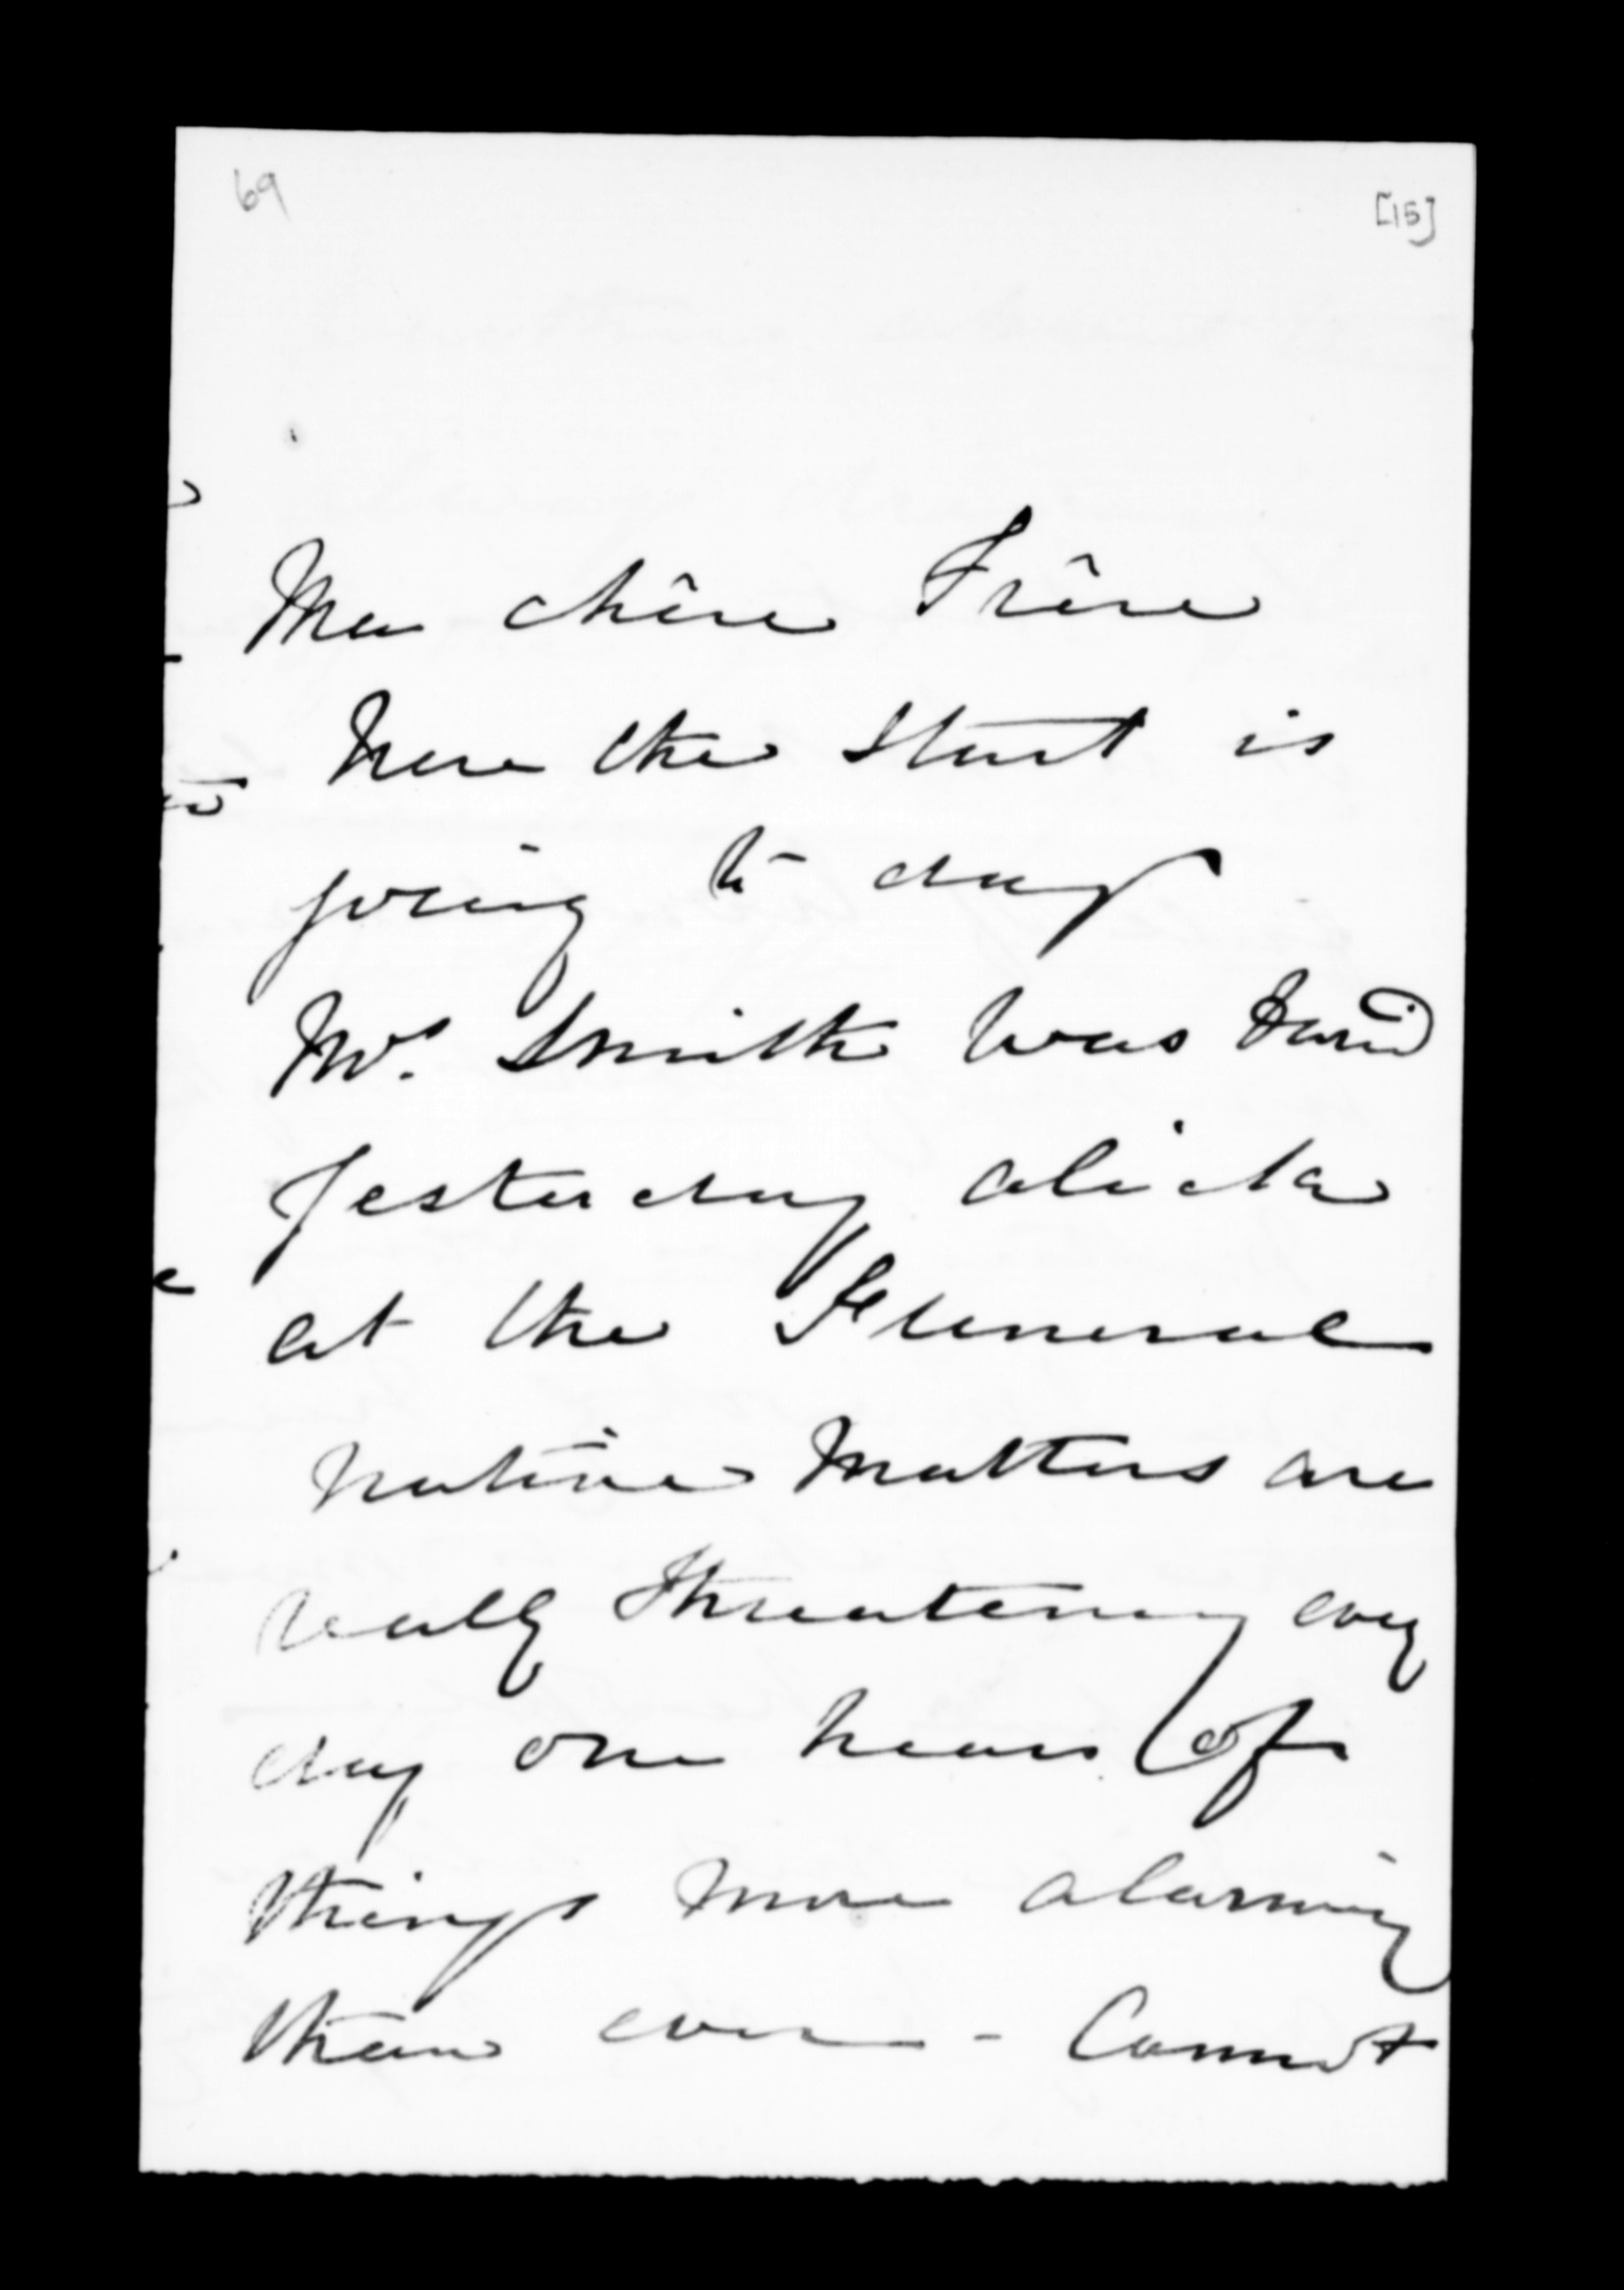 69
[15]
Mon chêre Frêre
Here the Sturt is
going to day
Mr. Smith was buried
yesterday alicka
at the Funeral
native matters are
really threatening every
day one hears of
things more alarming
than ever - Cannot